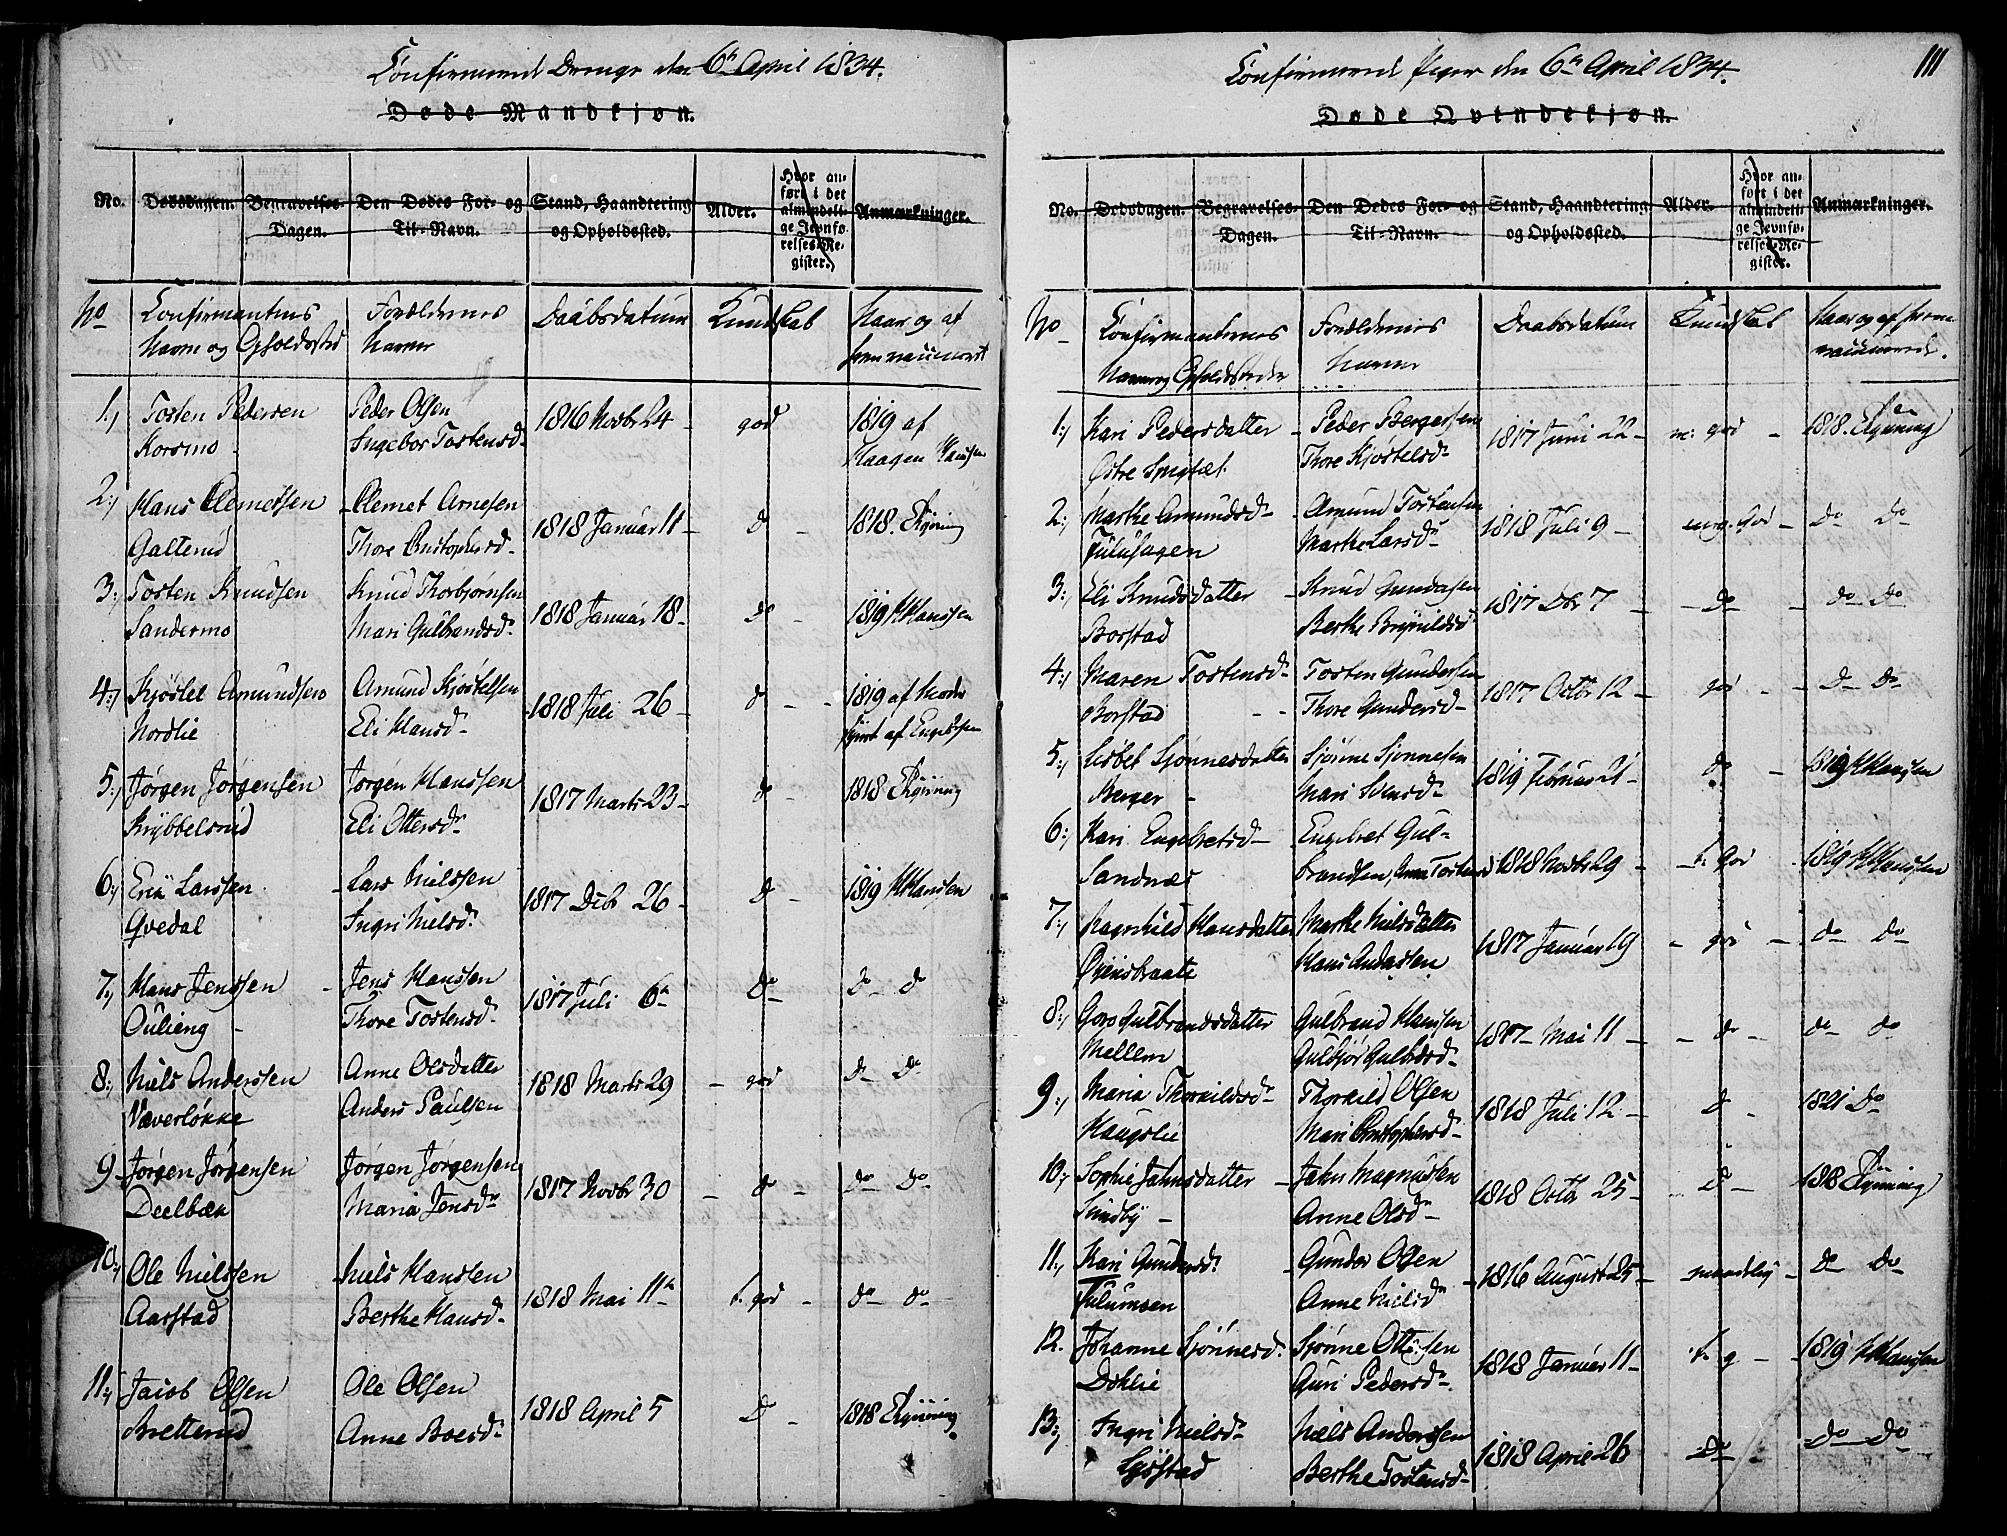 Confirmerede Drenge den 6te April 1834.
Døde Mandkjøn.
No.
Dødsdagen.
Begravelses-
Dagen.
Den Dødes For- og
Til-Navn.
Stand, Haandtering
og Opholdssted.
Alder.
Hvor an-
ført i det
almindeli-
ge Jevnfø-
relses-Re-
gister.
Anmærkninger.
No
Confirmantens
Navn og Opholdssted
Forældrenes
Navne
Daabsdatum
Kundskab
Naar og af
hvem vaccineret
1.) Tosten Pedersen
Korsmo
Peder Olsen
Ingebor Tostensd.
1816 Novbr 24 - god
1819 af
Haagen Hansen
2.) Hans Clemetsen
Galterud
Clemet Arnesen
Thore Christophersd.
1818 Januar 11 - do - 1818.
3.) Tosten Knudsen
Sandermo
Knud Thorbjørnsen
Mari Gulbrandsd.
1818 Januar 18 - do - 1819 HHansen
4.) Kjøstel Amundsen
Nordlie
Amund Kjøstelsen
Eli Hansd.
1818 Juli 26 - do -
1819 af
af Engebretsen
5.) Jørgen Jørgensen
Krybbelsrud
Jørgen Hanssen
Eli Ottersd.
1817 Marts 23 - do - 1818
6.) Erik Larssen
Qvedal
Lars Nielssen
Ingri Nielsd.
1817 Debr 26 - do - 1819 HHansen
7.) Hans Jenssen
Oulieng
Jens Hanssen
Thore Tostensd.
1817 Juli 6te do - do do
8.) Niels Anderssen
Væverløkke
Anne Olsdatter
Anders Paulsen
1818 Marts 29 - god do do
9 Jørgen Jørgensen
Deelbæk
Jørgen Jørgensen
Maria Jensd.
1817 Novbr 30 - do - do do
10.) Ole Nielssen
Aarstad
Niels Hanssen
Berthe Hansd.
1818 Mai 11te t. god - do do
11.) Jacob Olsen
Bretterud
Ole Olsen
Anne Boesd.
1818 April 5 do - 1818
111
Confirmerede Piger den 6te April 1834.
Døde Qvindekjøn.
No.
Dødsdagen.
Begravelses-
Dagen.
Den Dødes For- og
Til-Navn.
Stand, Haandtering
og Opholdssted.
Alder.
Hvor an-
ført i det
almindeli-
ge Jevnfø-
relses-Re-
gister.
Anmærkninger.
No
Confirmanternes
Navne og Opholdsteder
Forældrenes
Navne
Daabsdatum
Kundskab
Naar og af hvem
vaccineret.
1.) Kari Pedersdatter
Østre
Peder Bergersen
Thore Kjøstelsd.
1817 Juni 22 - m: god - 1818.
2.) Marthe Amundsd.
Amund Tostensen
Marthe Larsd.
1818 Juli 9 - meg. god - do do
3.) Eli Knudsdatter
Borstad
Knud Gundersen
Berthe Brynildsd.
1817 Dbr 7 - do - do do
4.) Maren Tostensd.
Borstad
Tosten Gundersen
Thore Gundersd.
1817 Octbr 12 - god - do do
5.) Lisbet Sjønnesdatter
Berger
Sjønne Sjønnesen
Mari Svensd.
1819 Februar 21 - do - 1819 HHansen
6.) Kari Engebretsd.
Sandnæs
Engebret Gul-
brandsen, Anne Tostensd
1818 Novbr 29 - t. god - 1819 HHansen
7.) Ragnhild Hansdatter
Øiensbraate
Marthe Nielsdatter
Hans Anderssen
1817 Januar 19 - god - do do
8.) Goro Gulbrandsdatter
Mellem
Gulbrand Hanssen
Gulbjør Gulbrsd.
1817 Mai 11 - do - do do
9.) Maria Thorkildsd.
Haugslie
Thorkild Olsen
Mari Christophersd.
1818 Juli 12 - do - 1821 do
10.) Sophie Jahnsdatter
Sundby
Jahn Magnussen
Anne Olsd.
1818 Octbr 25 - do - 1818
11.) Kari Gundersd.
Fulumoen
Gunder Olsen
Anne Nielsd.
1816 August 25 - maadelig - do do
12. Johanne Sjønnesd.
Døhlie
Sjønne Ottersen
Guri Pedersd.
1818 Januar 11 - t. g - 1819 HHansen
13.) Ingri Nielsd.
Lystad
Niels Anderssen
Berthe Tostensd.
1818 April 26 do - do do